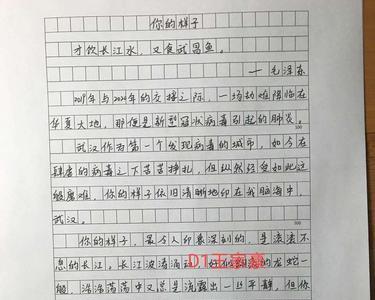 你的样子
才饮长江水，又食武昌鱼。
——毛泽东
2019年与2020年的交接之际，一场劫难降临在
华夏大地，那便是新型冠状病毒引起的肺炎。
100
武汉作为第一个发现病毒的城市，如今在
肆虐的病毒之下苦苦挣扎，但纵然经受如此这
般磨难，你的样子依旧清晰地印在我脑海中，
武汉。
你的样子，最令人印象深刻的，是滚滚不
息的长江。长江波涛涌动，好似翻滚的龙蛇一
般，浩浩荡荡中又总是流露出一丝平静，但你